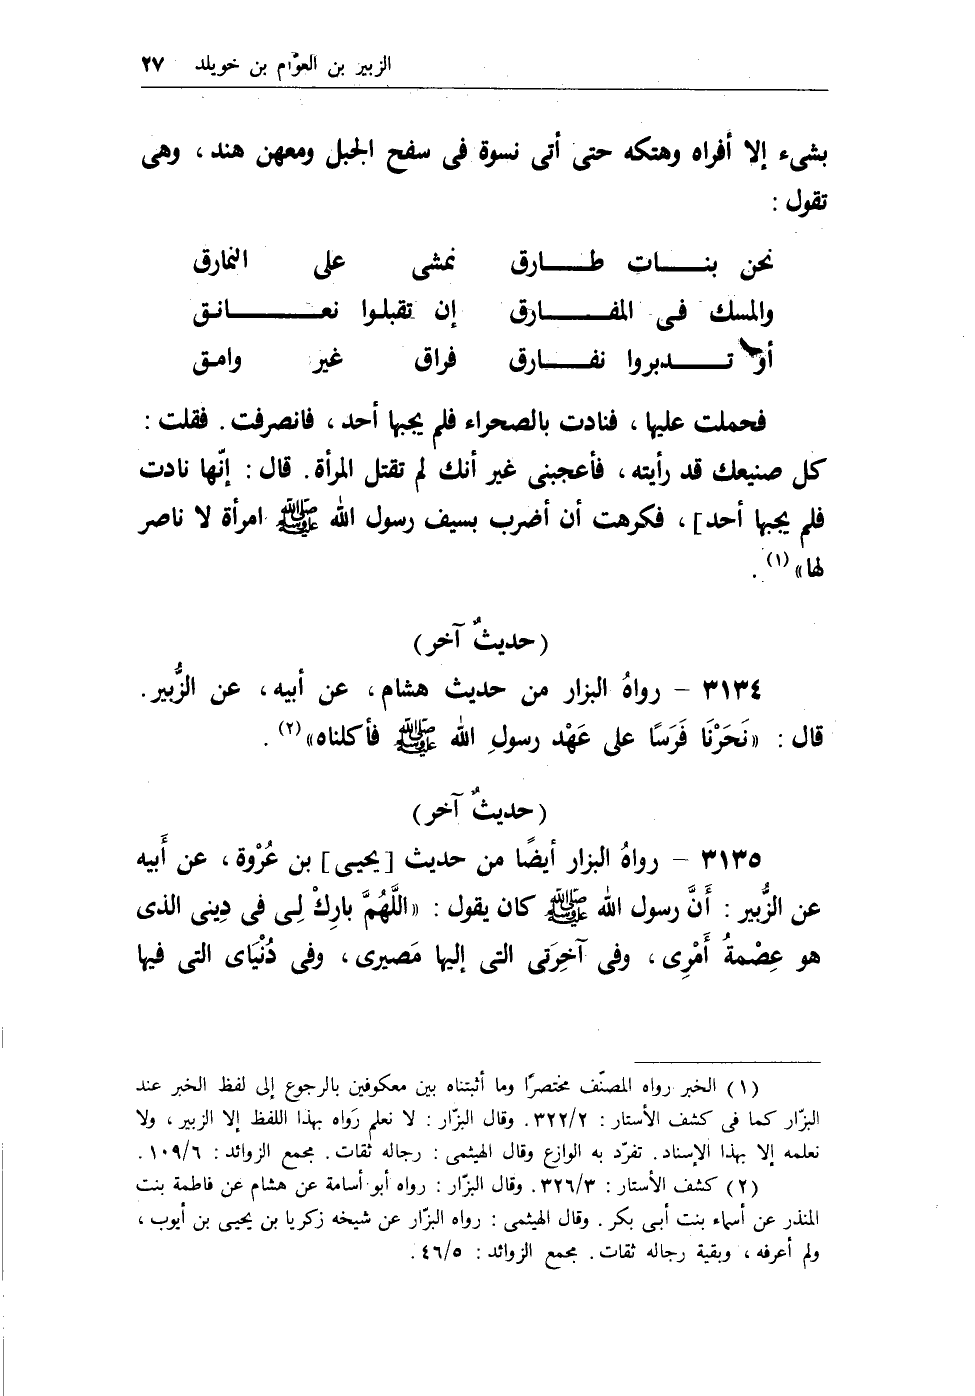 الزبير بن العوّام بن خويلد ٢٧
بشىء إلا أفراه وهتكه حتى أتى نسوة فى سفح الجبل ومعهن هند ، وهى
تقول :
نحن بنــــات طــــارق نمشى على النمارق
والمسك فى المفــــارق إن تقبلوا نعــــانق
أو تــــدبروا نفــــارق فراق غير وامق
فحملت عليها ، فنادت بالصحراء فلم يجبها أحد ، فانصرفت . فقلت :
كل صنيعك قد رأيته ، فأعجبنى غير أنك لم تقتل المرأة . قال : إنّها نادت
فلم يجبها أحد] ، فكرهت أن أضرب بسيف رسول الله ﷺ امرأة لا ناصر
لها» (١) .
(حديثٌ آخر)
٣١٣٤ – رواهُ البزار من حديث هشام ، عن أبيه ، عن الزُّبير .
قال : «نَحَرْنَا فَرَسًا على عَهْد رسولِ الله ﷺ فأكلناه» (٢) .
(حديثٌ آخر)
٣١٣٥ – رواهُ البزار أيضًا من حديث [يحيى] بن عُرْوة ، عن أَبيه
عن الزُّبير : أَنَّ رسول الله ﷺ كان يقول : «اللَّهُمَّ بارِكْ لِى فى دِينى الذى
هو عِصْمةُ أَمْرِى ، وفى آخِرَتى التى إليها مَصيرى ، وفى دُنْيَاى التى فيها
(١) الخبر رواه المصنّف مختصرًا وما أثبتناه بين معكوفين بالرجوع إلى لفظ الخبر عند
البزّار كما فى كشف الأستار : ٣٢٢/٢ . وقال البزّار : لا نعلم رَواه بهذا اللفظ إلا الزبير ، ولا
نعلمه إلا بهذا الإسناد . تفرّد به الوازع وقال الهيثمى : رجاله ثقات . مجمع الزوائد : ١٠٩/٦ .
(٢) كشف الأستار : ٣٢٦/٣ . وقال البزّار : رواه أبو أسامة عن هشام عن فاطمة بنت
المنذر عن أسماء بنت أبى بكر . وقال الهيثمى : رواه البزّار عن شيخه زكريا بن يحيى بن أيوب ،
ولم أعرفه ، وبقية رجاله ثقات . مجمع الزوائد : ٤٦/٥ .